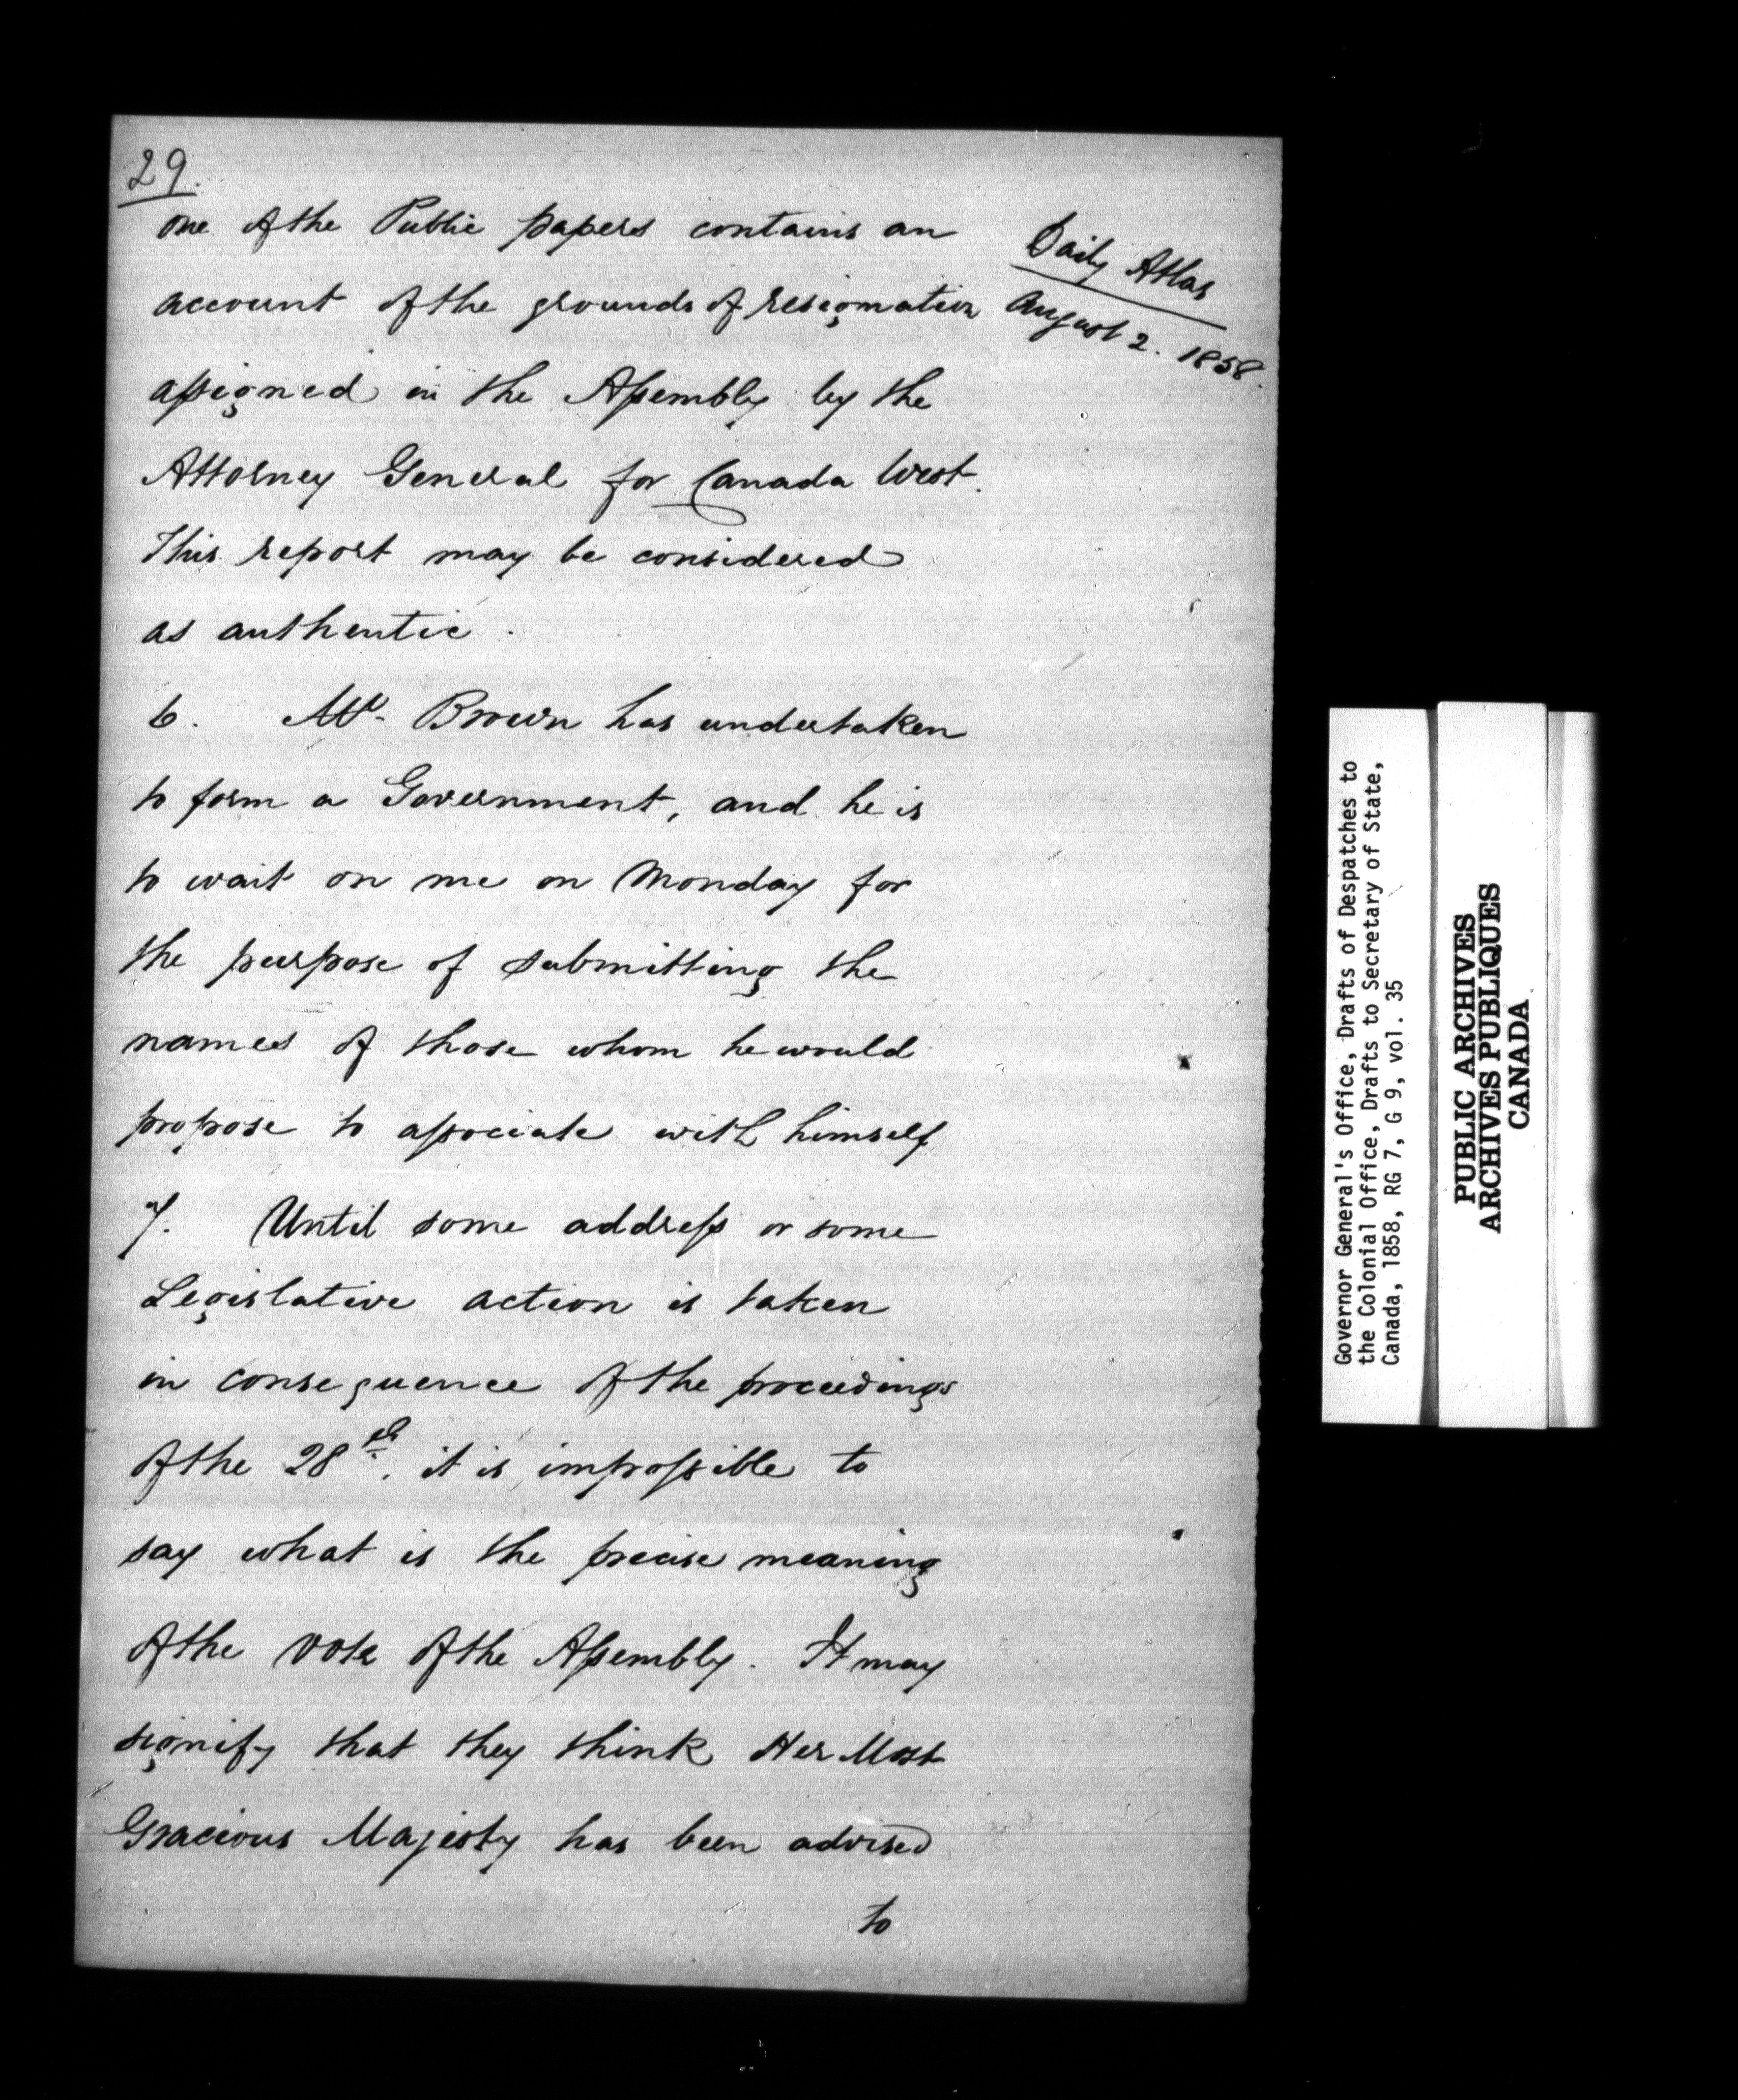 29.
one of the Public papers contains an
account of the grounds of resignation
assigned in the Assembly by the
Attorney General for Canada West.
This report may be considered
as authentic.
Daily Atlas
August 2. 1858.
6. Mr. Brown has undertaken
to form a Government, and he is
to wait on me on Monday for
the purpose of submitting the
names of those whom he would
propose to associate with himself
7. Until some address or some
Legislative action is taken
in consequence of the proceedings
of the 28th. it is impossible to
say what is the precise meaning
of the vote of the Assembly. It may
signify that they think Her Most
Gracious Majesty has been advised
to
Governor General's Office, Drafts of Despatches to
the Colonial Office, Drafts to Secretary of State,
Canada, 1858, RG 7, G 9, vol. 35
PUBLIC ARCHIVES
ARCHIVES PUBLIQUES
CANADA